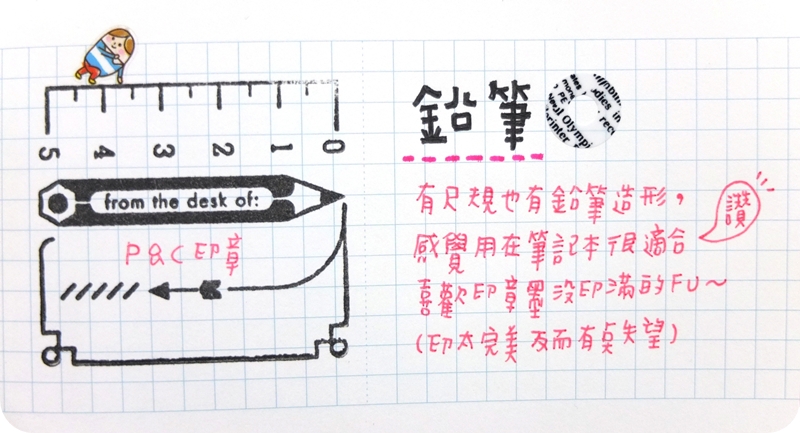 5 4 3 2 1 0
from the desk of:
P&C印章
鉛筆
有尺規也有鉛筆造形,
感覺用在筆記本很適合
讚
喜歡印章墨沒印滿的FU~
(印太完美反而有點失望)